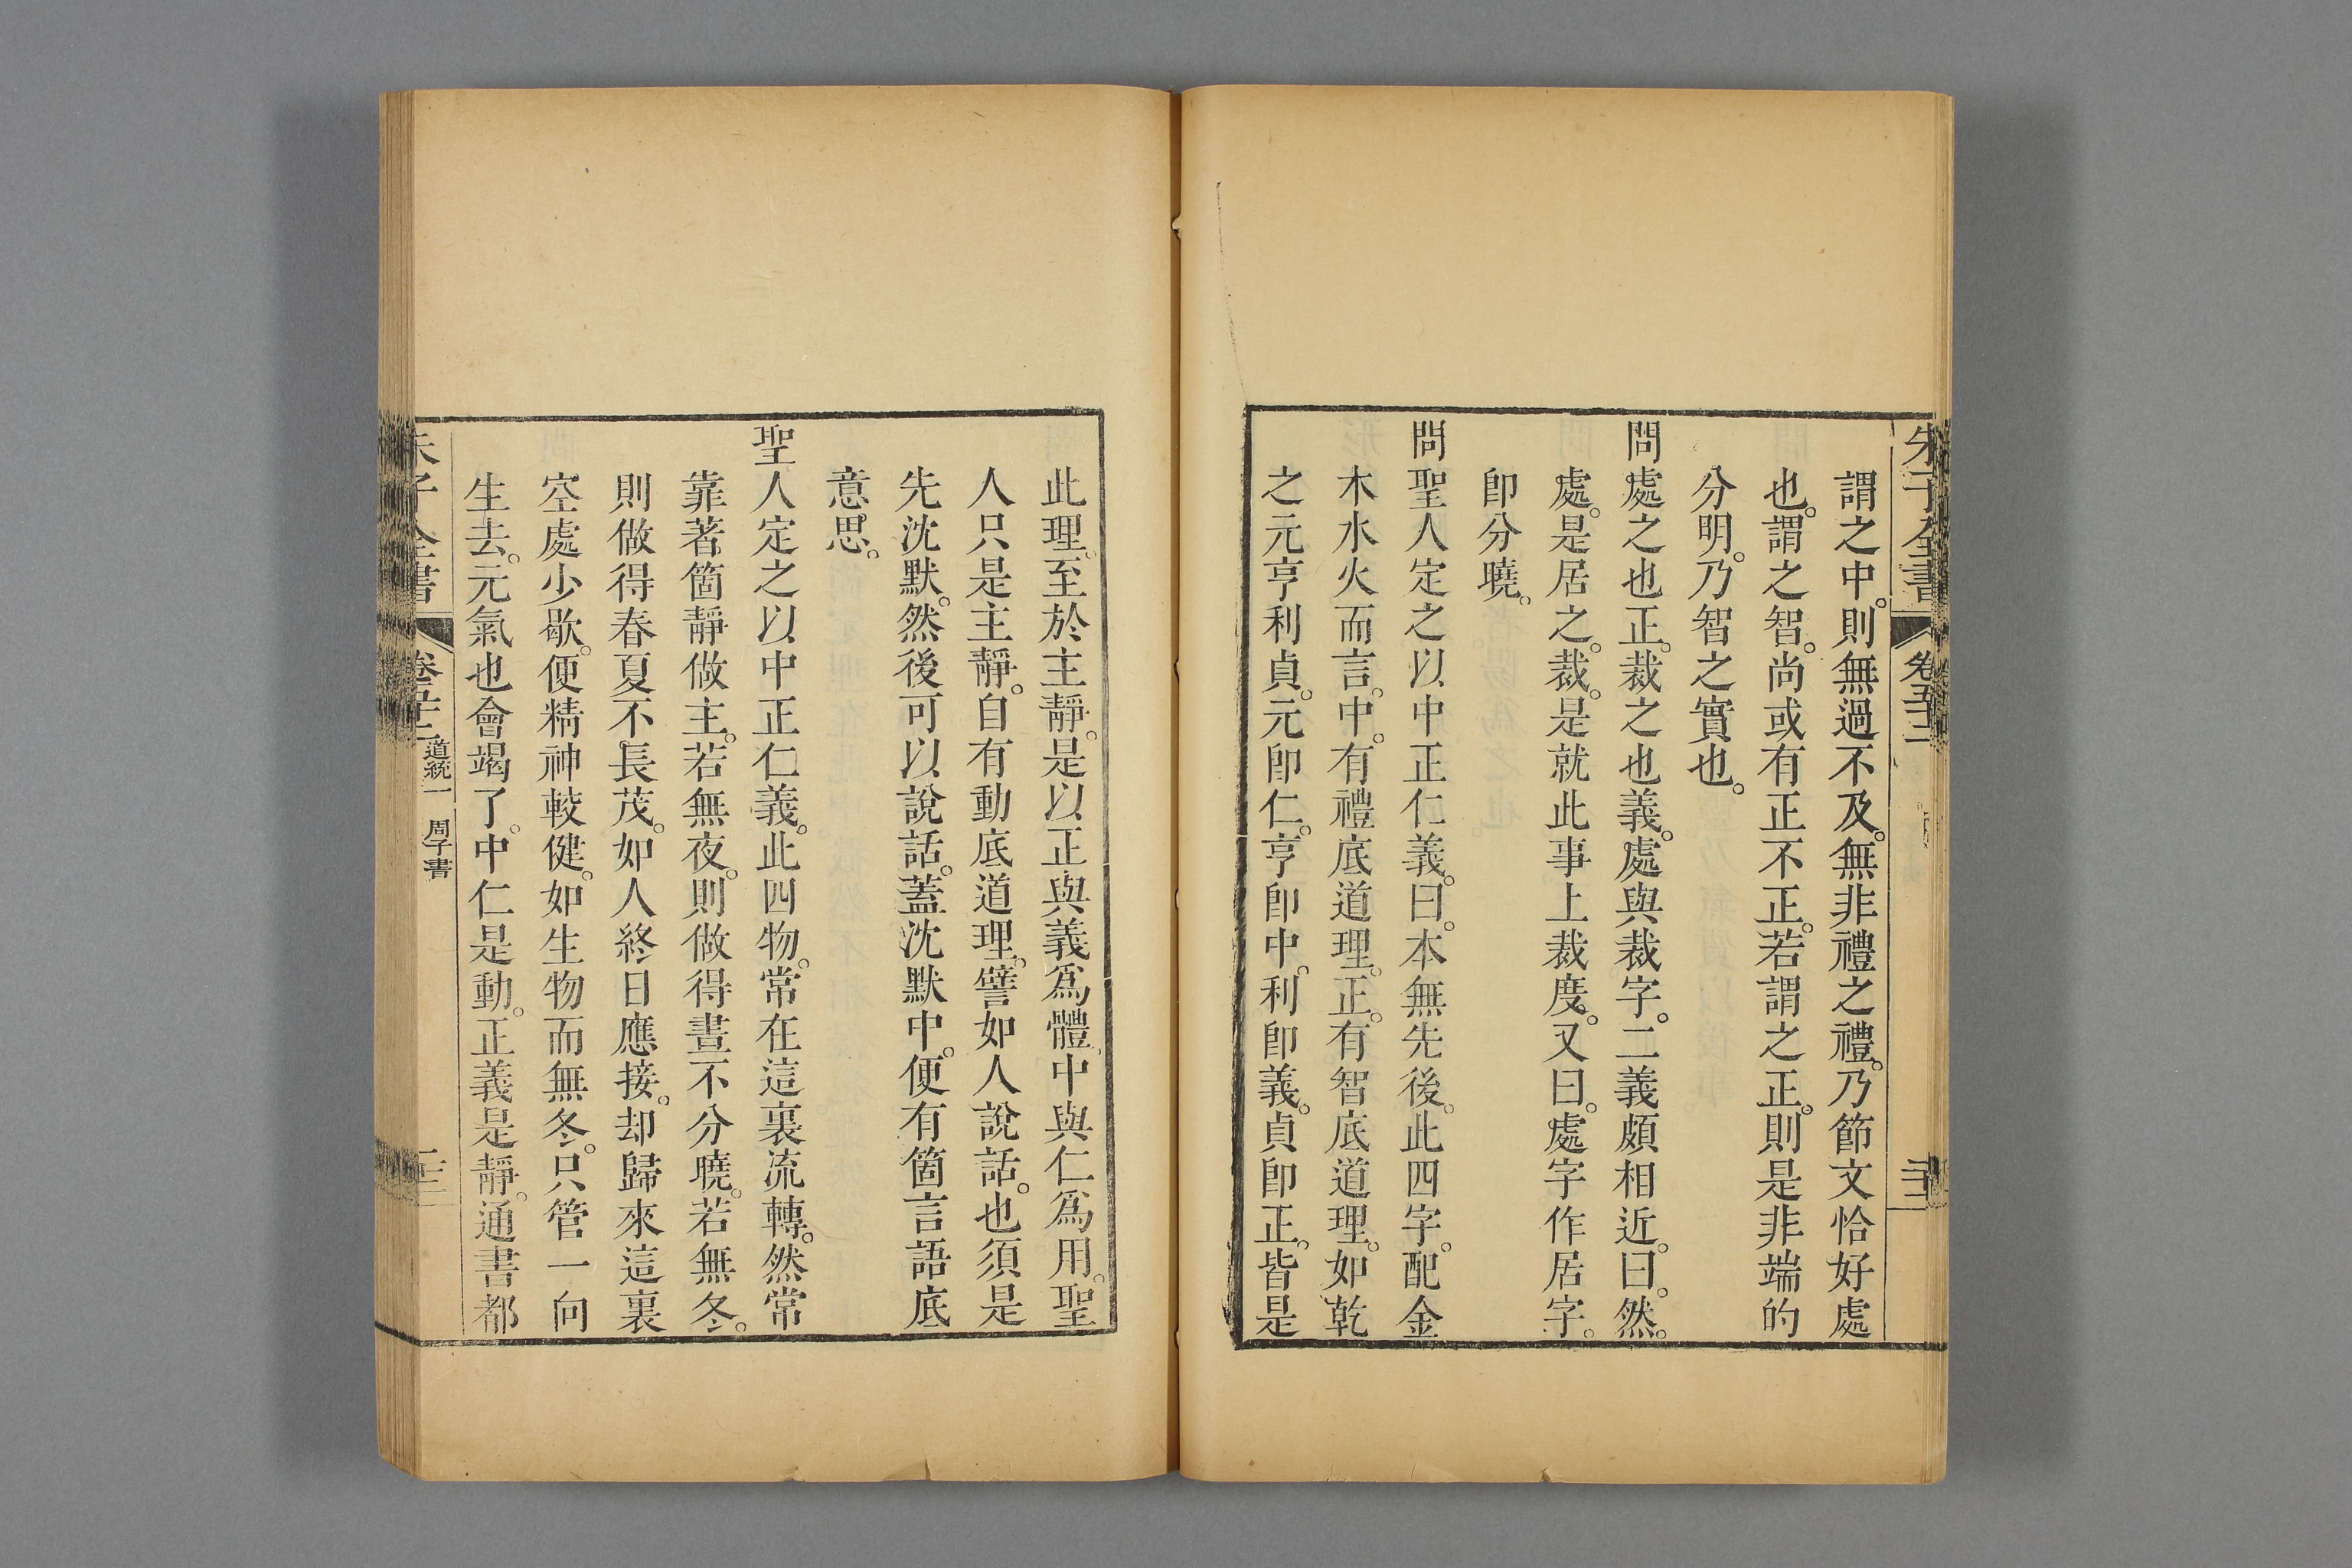 朱子全書
卷五十二
謂之中。則無過不及。無非禮之禮。乃節文恰好處
也。謂之智。尚或有正不正。若謂之正。則是非端的
分明。乃智之實也。
問處之也正。裁之也義。處與裁字。二義頗相近。曰。然。
處。是居之。裁。是就此事上裁度。又曰。處字作居字。
卽分曉。
問聖人定之以中正仁義。曰。本無先後。此四字。配金
木水火而言。中。有禮底道理。正。有智底道理。如乾
之元亨利貞。元卽仁。亨卽中。利卽義。貞卽正。皆是
此理。至於主靜。是以正與義爲體。中與仁爲用。聖
人只是主靜。自有動底道理。譬如人說話。也須是
先沈默。然後可以說話。蓋沈默中。便有箇言語底
意思。
聖人定之以中正仁義。此四物。常在這裏流轉。然常
靠著箇靜做主。若無夜。則做得晝不分曉。若無冬。
則做得春夏不長茂。如人終日應接。却歸來這裏
空處少歇。便精神較健。如生物而無冬。只管一向
生去。元氣也會竭了。中仁是動。正義是靜。通書都
朱子全書
卷五十二 道統一 周子書